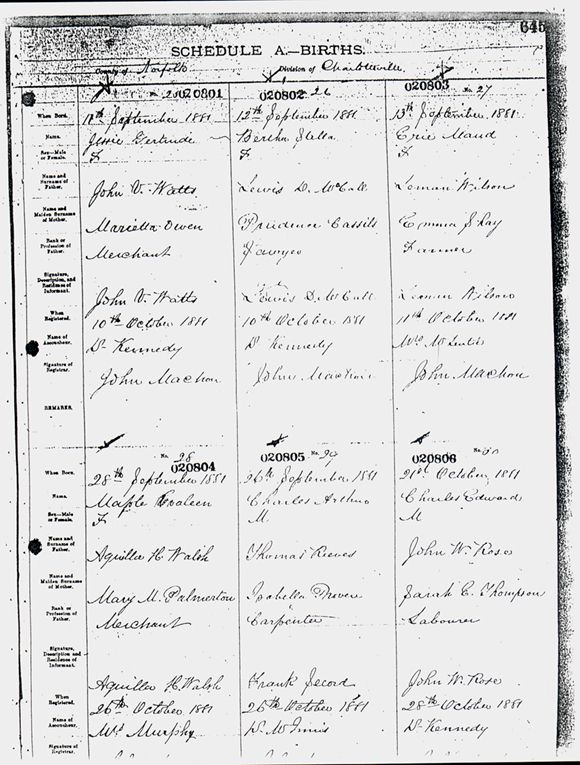 645
SCHEDULE A.—BIRTHS.
County of Norfolk Division of Charlotteville
020801 020802 26 020803 No. 27
When Born. 11th September 1881 12th September 1881 13th September 1881
Name. Jessie Gertrude Bertha Stella Evie Maud
Sex—Male or Female. F F F
Name and Surname of Father. John V. Watts Lewis D. McCall Leman Wilson
Name and Maiden Surname of Mother. Marietta Owen Prudence Cassils Emma
Rank or Profession of Father. Merchant Farmer
Signature, Description, and Residence of Informant. John V. Watts Lewis D. McCall Leman Wilson
When Registered. 10th October 1881 10th October 1881 11th October 1881
Name of Accoucheur. Dr Kennedy Dr Kennedy
Signature of Registrar. John Machon John Machon John Machon
REMARKS.
No. 28 020804 020805 No. 29 020806 No.
When Born. 28th September 1881 26th September 1881 21st October 1881
Name. Maple Charles Arthur Charles Edward
Sex—Male or Female. F M. M
Name and Surname of Father. Aquilla H. Walsh Thomas Reeves John W. Rose
Name and Maiden Surname of Mother. Mary M. Palmerton Isabella John Sarah E. Thompson
Rank or Profession of Father. Merchant Carpenter Labourer
Signature, Description and Residence of Informant. Aquilla H. Walsh Frank Secord John W. Rose
When Registered. 26th October 1881 26th October 1881 28th October 1881
Name of Accoucheur. Mrs Murphy Dr McInnis Dr Kennedy
Signature of Registrar.